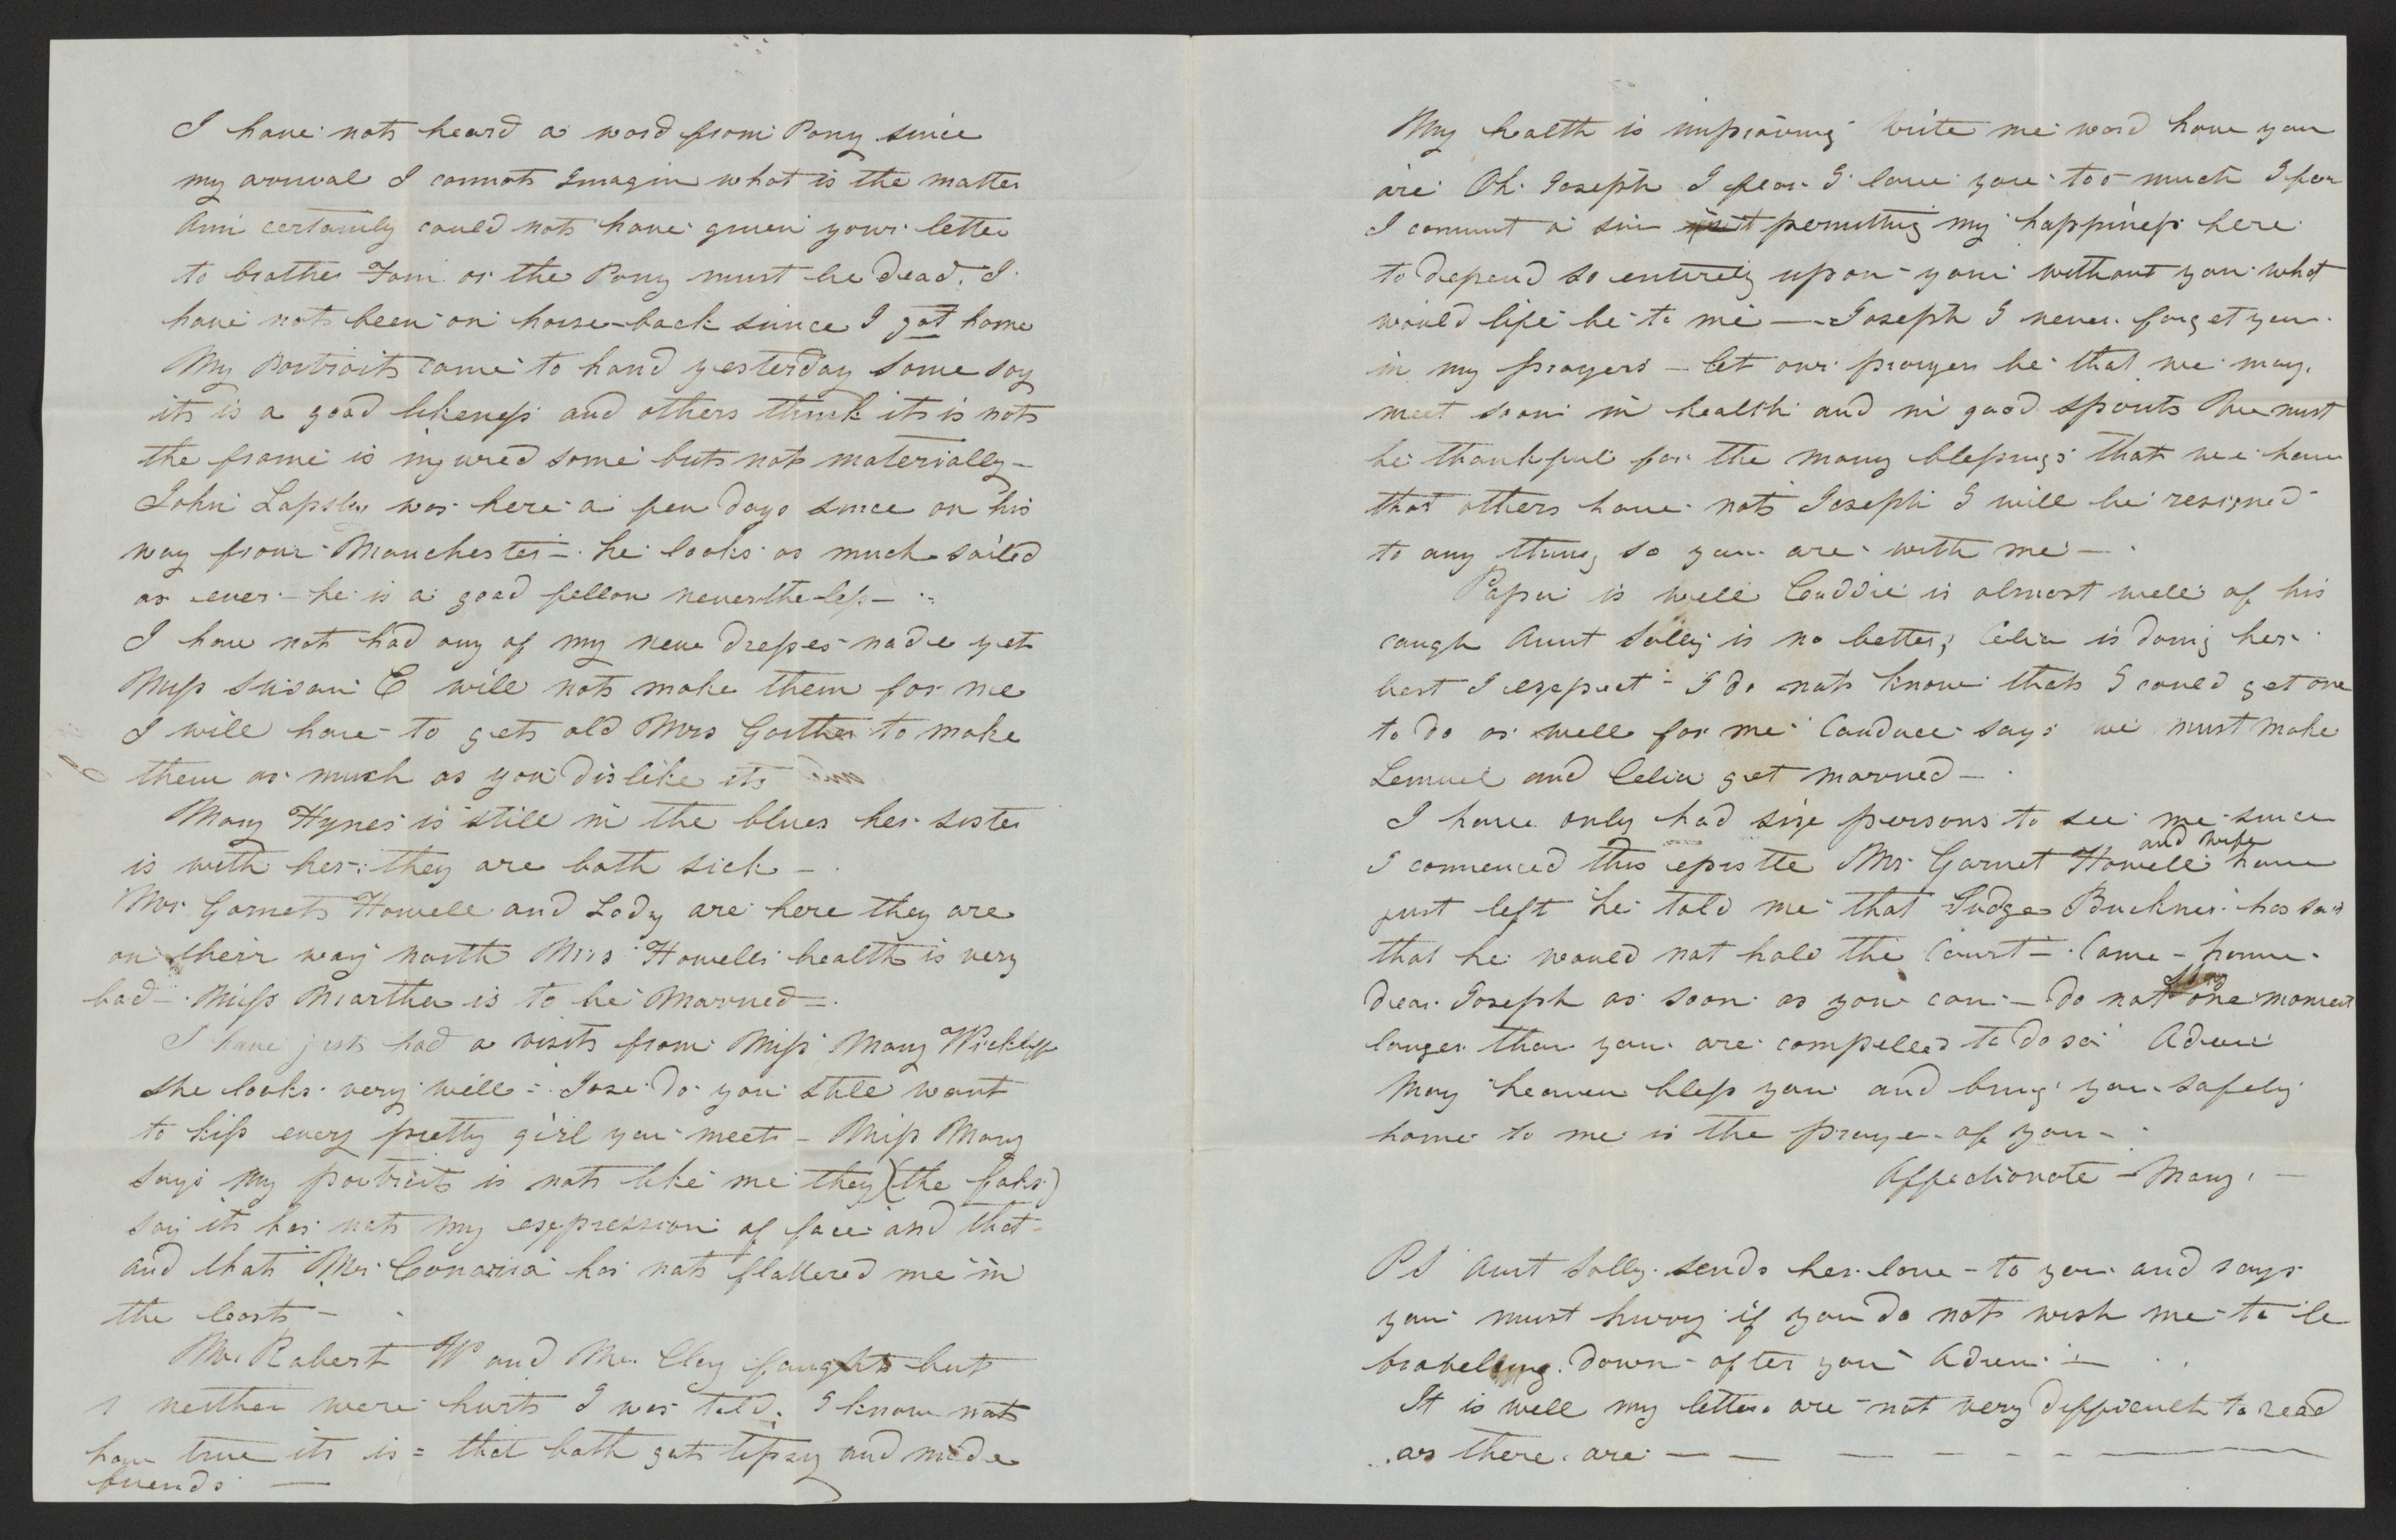 I have not heard a word from Pony since
my arrival I cannot Imagin what is the matter
Ann certainly could not have given your letter
to brother Tom or the Pony must be dead. I
have not been on horse-back sinnce I got home
My Portrait came to hand yesterday some say
it is a good likeness and others think it is not
the frame is injured some but not materially -
John Lapsley was here a few days since on his
way from Manchester - he looks as much soiled
as ever - he is a good fellow nevertheless -
I have not had any of my new dresses made yet
Miss Susan C will not make them for me
I will have to get old Mrs Gaither to make
them as much as you dislike it
Mary Hynes is still in the blues her sister
is with her they are both sick -
Mr Garnet Howell and Lady are here they are
on their way north Mrs Howells health is very
bad - Miss Martha is to be Married -
I have just had a visit from Miss Mary Wickliff
she looks very well - Jose do you still want
to kiss every pretty girl you meet - Miss Mary
says my portrait is not like me they (the foks)
say it has not my expression of face and that
and that Mr has not flattered me in
the least -
Mr Robert W and Mr. Clay fought but
neither were hurt I was told. I know not
how true it is = that both got tipsy and made
friends -
My health is improving write me word how you
are Oh. Joseph I fear I love you too much I fear
I commit a sin permitting my happiness here
to depend so entirely upon you without you what
would life be to me — Joseph I never forget you
in my prayers - let our prayers be that we may
meet soon in health and in good spirits We must
be thankful for the many blessings that we have
that others have not Joseph I will be resigned
to any thing so you are with me -
Papa is well Cuddie is almost well of his
cough Aunt Sally is no better, Celia is doing her
best I expect - I do not know that I could get one
to do as well for me Canduce says we must make
Lemuel and Celia get married -
I have only had six persons to see me since
I comenced this epistle Mr Garnet Howell and wife have
just left he told me that Judge Buckner has said
that he would not hold the Court - Come - home
dear Joseph as soon as you can - do not stay one moment
longer than you are compelled to do so Adieu
May heaven bless you and bring you safely
home to me is the prayer of your
Affectionate - Mary. -
P S Aunt Sally sends her love - to you and says
you must hurry if you do not wish me to be
travelling down after you Adieu -
It is well my letters are not very difficult to read
as there are — — — — — —